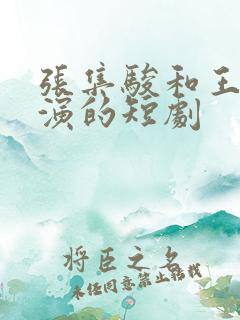 張集駿和王
演的短劇
將臣之名
未經同意禁止轉載